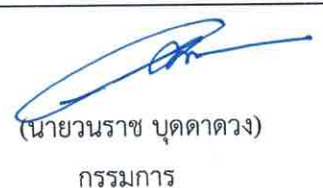 (นายวนราช บุดดาดวง)
กรรมการ